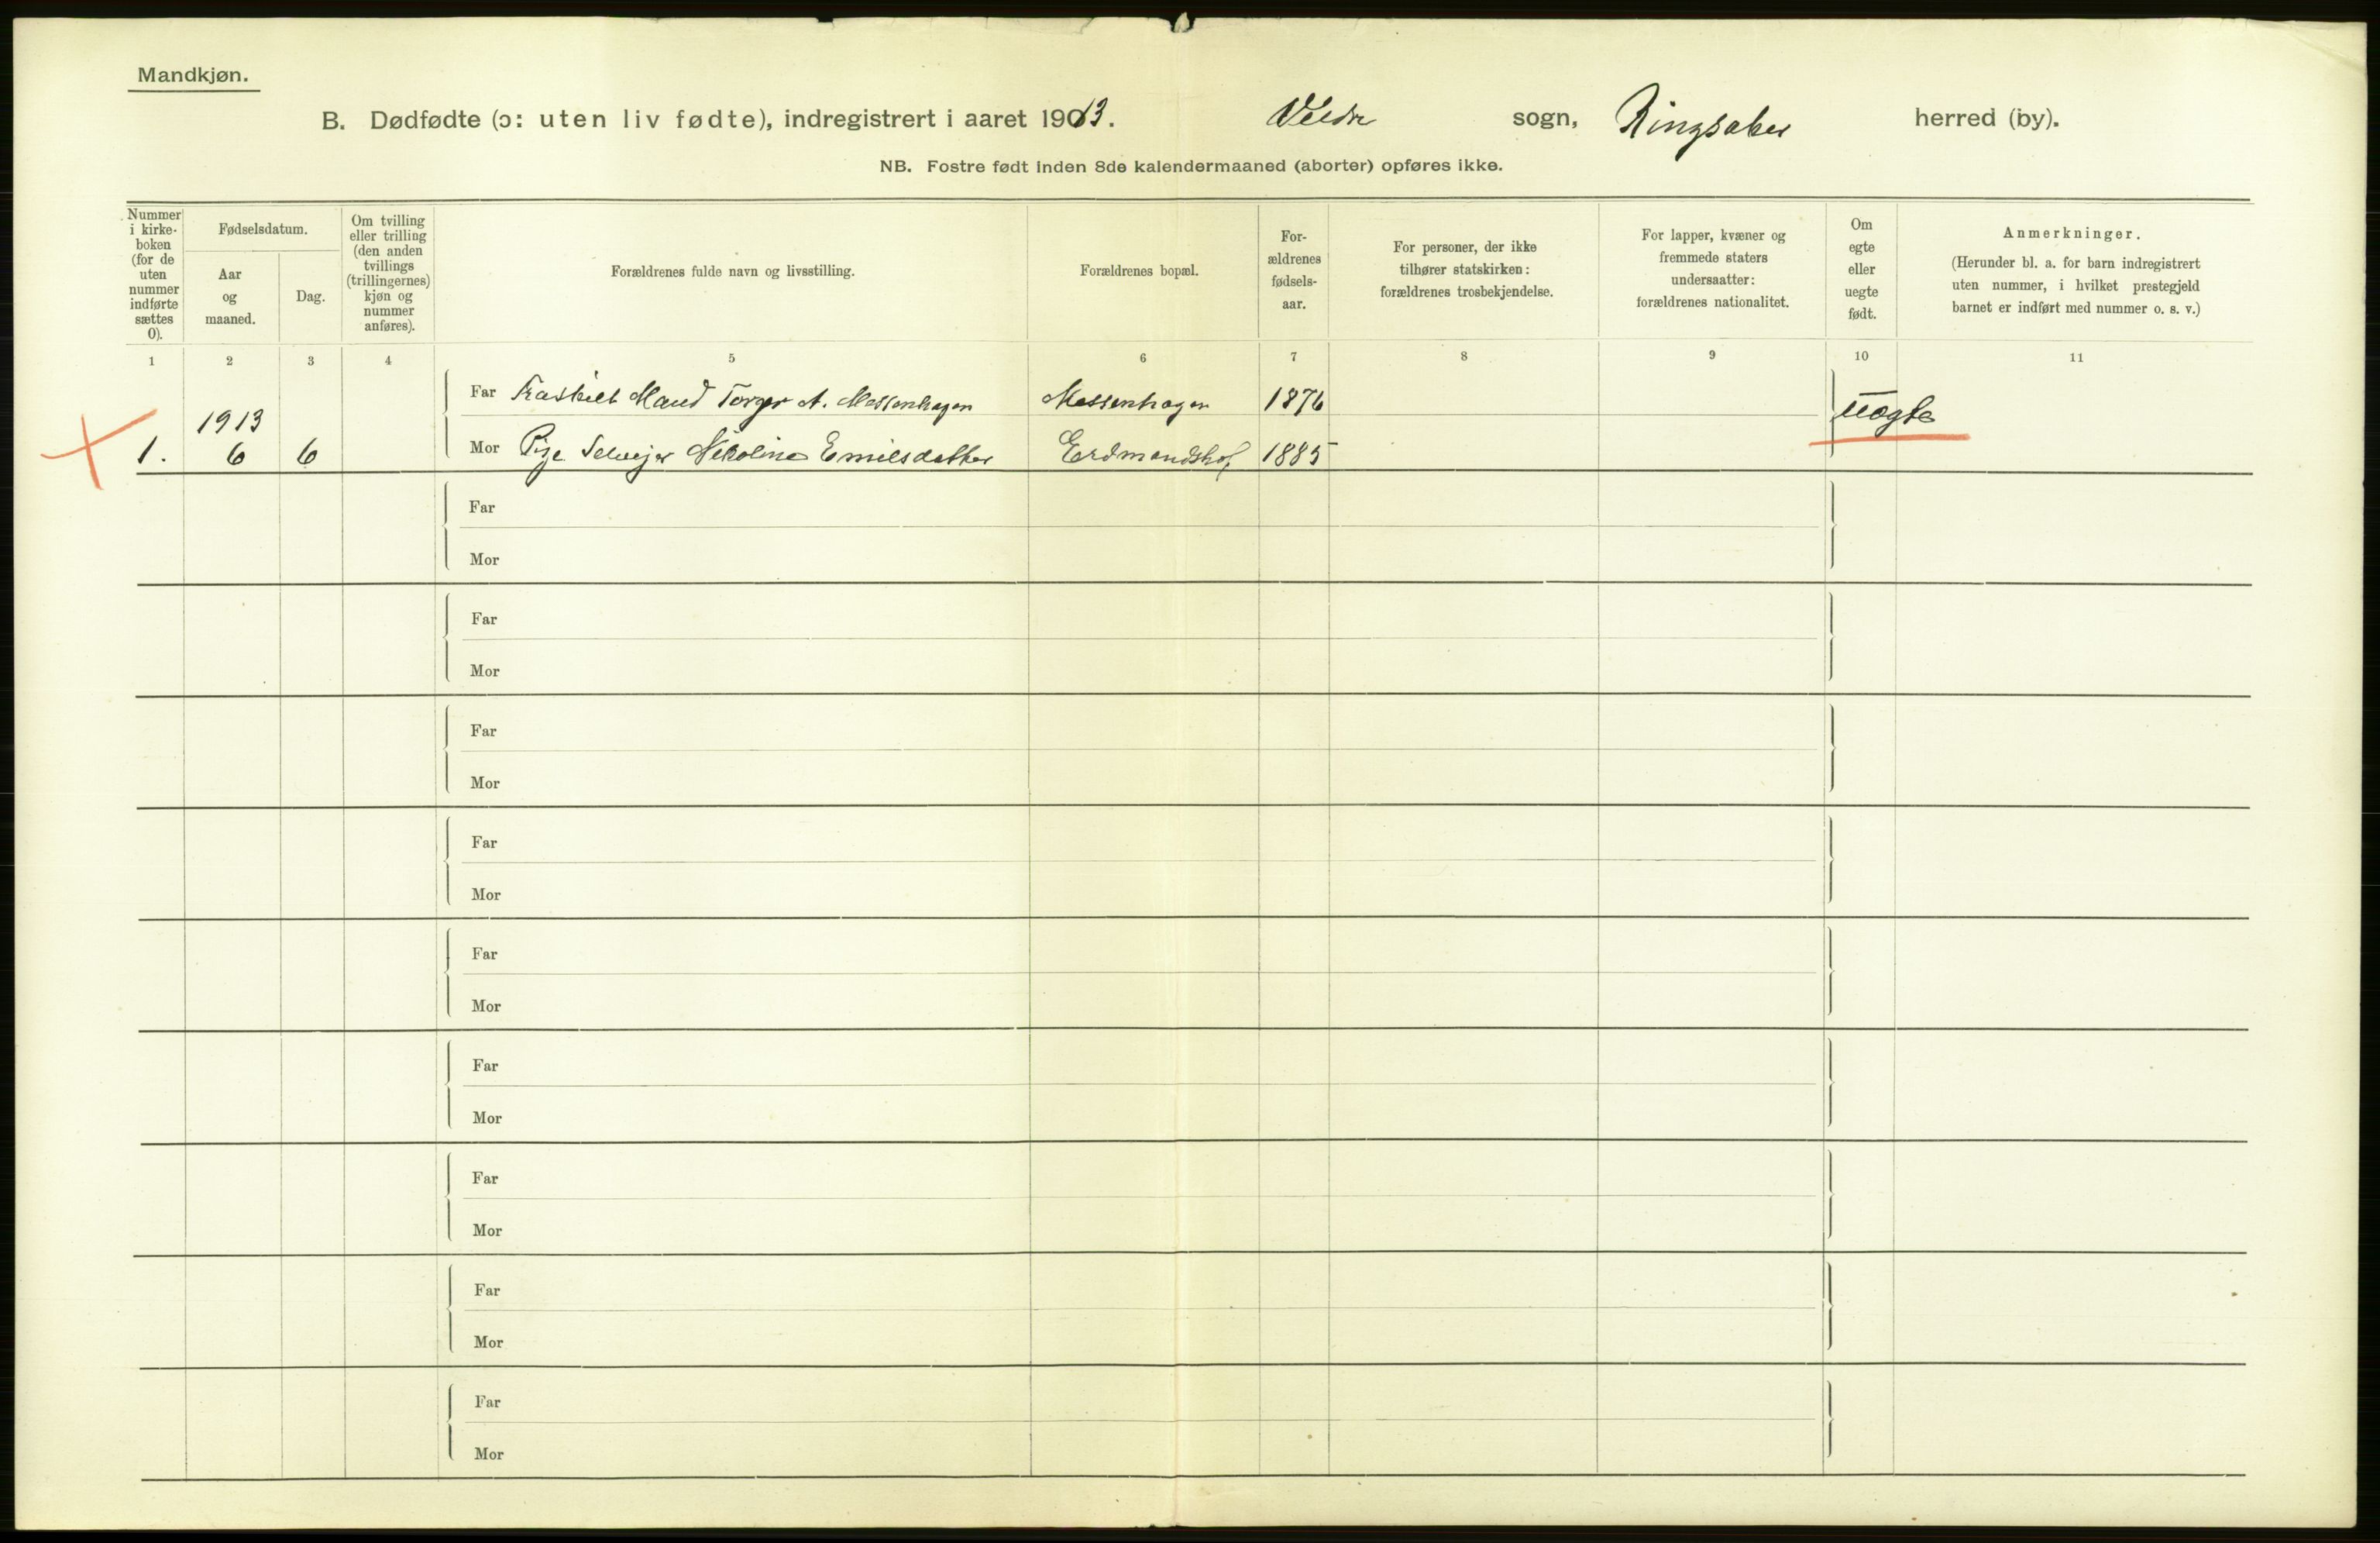 Mandkjøn.
B. Dødfødte (ɔ: uten liv fødte), indregistrert i aaret 1913. Veldre sogn, Ringsaker herred (by).
NB. Fostre født inden 8de kalendermaaned (aborter) opføres ikke.
Nummer
i kirke-
boken
(for de
uten
nummer
indførte
sættes
0).
Fødselsdatum.
Aar
og
maaned.
Dag.
Om tvilling
eller trilling
(den anden
tvillings
(trillingernes)
kjøn og
nummer
anføres).
Forældrenes fulde navn og livsstilling.
Forældrenes bopæl.
For-
ældrenes
fødsels-
aar.
For personer, der ikke
tilhører statskirken:
forældrenes trosbekjendelse.
For lapper, kvæner og
fremmede staters
undersaatter:
forældrenes nationalitet.
Om
egte
eller
uegte
født.
Anmerkninger.
(Herunder bl. a. for barn indregistrert
uten nummer, i hvilket prestegjeld
barnet er indført med nummer o. s. v.)
1 2 3 4 5 6 7 8 9 10 11
Far Fraskilt Mand Torger A. Messenhagen Messenhagen 1876
1913 uægte
1. 6 6 Mor Pige Nikoline Emilsdatter Erdmandshof 1885
Far
Mor
Far
Mor
Far
Mor
Far
Mor
Far
Mor
Far
Mor
Far
Mor
Far
Mor
Far
Mor